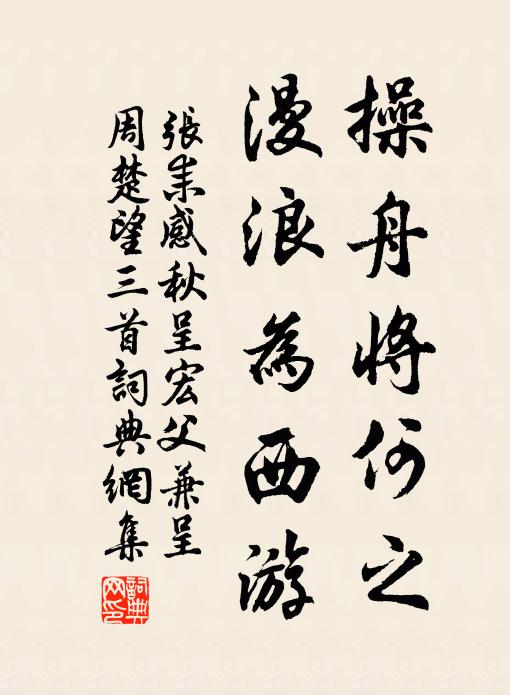 操舟將何之
漫浪為西游
張耒感秋呈宏父兼呈
周楚望三首詞典網集
詞典
网印